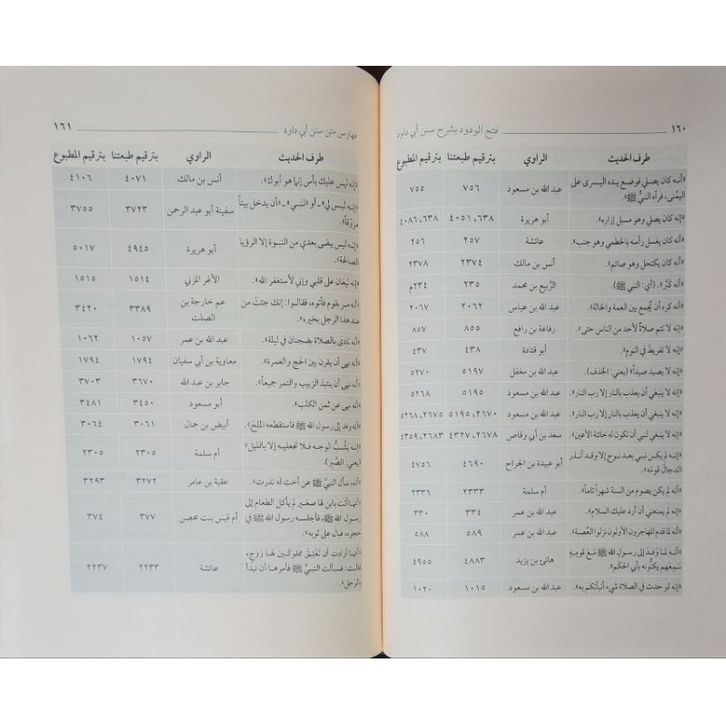 ١٦٠ فتح الودود بشرح سنن أبي داود
طرف الحديث الراوي بترقيم طبعتنا بترقيم المطبوع
«أنه كان يصلي فوضع يده اليسرى على
اليمنى، فرآه النبيُّ ﷺ». عبد الله بن مسعود ٧٥٦ ٧٥٥
«إنه كان يصلي وهو مسبل إزاره». أبو هريرة ٦٣٨، ٤٠٥١ ٦٣٨، ٤٠٨٦
«أنه كان يغسل رأسه بالخطمي وهو جنب». عائشة ٢٥٧ ٢٥٦
«أنه كان يكتحل وهو صائم». أنس بن مالك ٢٣٧٤ ٢٣٧٨
«أنه كَبَّرَ». (أي: النبي ﷺ). الربيع بن محمد ٢٣٥ ٢٣٤م
«أنه كره أن يُجمع بين العمة والخالة». عبد الله بن عباس ٢٠٦٢ ٢٠٦٧
«إنه لا تتم صلاةٌ لأحد من الناس حتى». رفاعة بن رافع ٨٥٥ ٨٥٧
«إنه لا تفريط في النوم». أبو قتادة ٤٣٨ ٤٣٧
«إنه لا يصيد صيداً» (يعني: الخذف). عبد الله بن مغفل ٥١٩٧ ٥٢٧٠
«إنه لا ينبغي أن يعذب بالنار إلا رب النار». عبد الله بن مسعود ٥١٩٥ ٥٢٦٨
«إنه لا ينبغي أن يعذب بالنار إلا رب النار». عبد الله بن مسعود ٢٦٧٠، ٥١٩٥ ٢٦٧٥، ٥٢٦٨
«إنه لا ينبغي لنبي أن تكون له خائنة الأعين». سعد بن أبي وقاص ٢٦٧٨، ٤٣٢٧ ٢٦٨٣، ٤٣٥٩
«إنه لم يكن نبي بعد نوح إلا وقد أنذر
الدجالَ قومَه». أبو عبيدة بن الجراح ٤٦٩٠ ٤٧٥٦
«أنه لم يكن يصوم من السنة شهراً تاماً». أم سلمة ٢٣٣٣ ٢٣٣٦
«إنه لم يمنعني أن أرد عليك السلام». عبد الله بن عمر ٣٣٤ ٣٣٠
«أنه لما قدم المهاجرون الأولون نزلوا العُصبة». عبد الله بن عمر ٥٨٩ ٥٨٨
«أنه لما وفد إلى رسول الله ﷺ مَعَ قومِهِ
سَمِعَهم يكنُّونه بأبي الحكم». هانئ بن يزيد ٤٨٨٣ ٤٩٥٥
«إنه لو حدث في الصلاة شيء أنبأتكم به». عبد الله بن مسعود ١٠١٥ ١٠٢٠
فهارس متن سنن أبي داود ١٦١
طرف الحديث الراوي بترقيم طبعتنا بترقيم المطبوع
«إنه ليس عليك بأس إنما هو أبوك». أنس بن مالك ٤٠٧١ ٤١٠٦
«إنه ليس لي» ـ أو «لنبي» ـ «أن يدخل بيتاً
مزوّقاً». سفينة أبو عبد الرحمن ٣٧٢٣ ٣٧٥٥
«إنه ليس يبقى بعدي من النبوة إلا الرؤيا
الصالحة». أبو هريرة ٤٩٤٥ ٥٠١٧
«إنه ليُغان على قلبي وإني لأستغفر الله». الأغر المزني ١٥١٤ ١٥١٥
«أنه مر بقوم فأتوه، فقالوا: إنك جئتَ من
عند هذا الرجل بخير». عم خارجة بن
الصلت ٣٣٨٩ ٣٤٢٠
«أنه نادى بالصلاة بضجنان في ليلة». عبد الله بن عمر ١٠٥٧ ١٠٦٢
«أنه نهى أن يقرن بين الحج والعمرة». معاوية بن أبي سفيان ١٧٩٤ ١٧٩٤
«أنه نهى أن يُنتبذ الزبيب والتمر جميعاً». جابر بن عبد الله ٣٦٧٠ ٣٧٠٣
«أنه نهى عن ثمن الكلب». أبو مسعود ٣٤٥٠ ٣٤٨١
«أنه وفد إلى رسول الله ﷺ فاستقطعه الملحَ». أبيض بن حمال ٣٠٦١ ٣٠٦٤
«إنه يَشُبُّ الوجه فلا تجعليه إلا بالليل»
(يعني: الصَّبِر). أم سلمة ٢٣٠٥ ٢٣٠٥
«أنه سأل النبيَّ ﷺ عن أخت له نذرت». عقبة بن عامر ٣٢٧٢ ٣٢٩٣
«أنها أتت بابن لها صغير لم يأكل الطعام إلى
رسول الله ﷺ، فأجلسه رسول الله ﷺ في
حجره، فبال على ثوبه». أم قيس بنت محصن ٣٧٧ ٣٧٤
«أنها أرادت أن تُعْتِقَ مملوكين لها زوج،
قالت: فسألت النبيَّ ﷺ فأمرها أن تبدأ
بالرجل». عائشة ٢٢٣٣ ٢٢٣٧